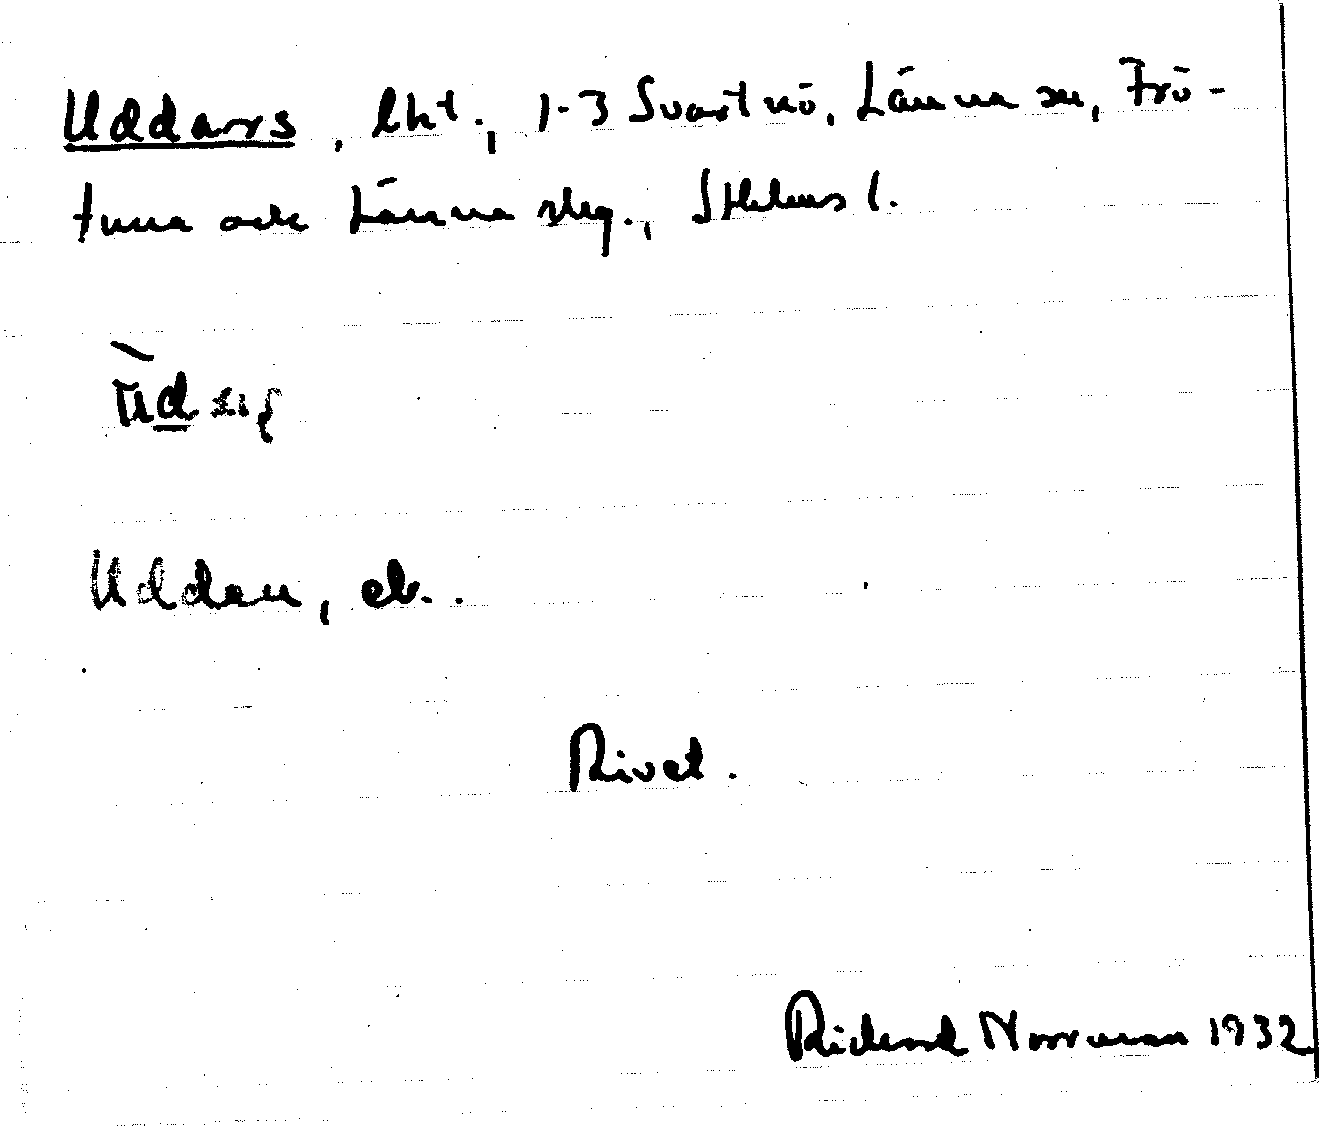 Uddars, lht., 1-3 Svartnö, Länna sn, Frö-
tuna och Länna slg., Sthlms l.
Udden, eb..
Rivet.
Richard Norrman 1932